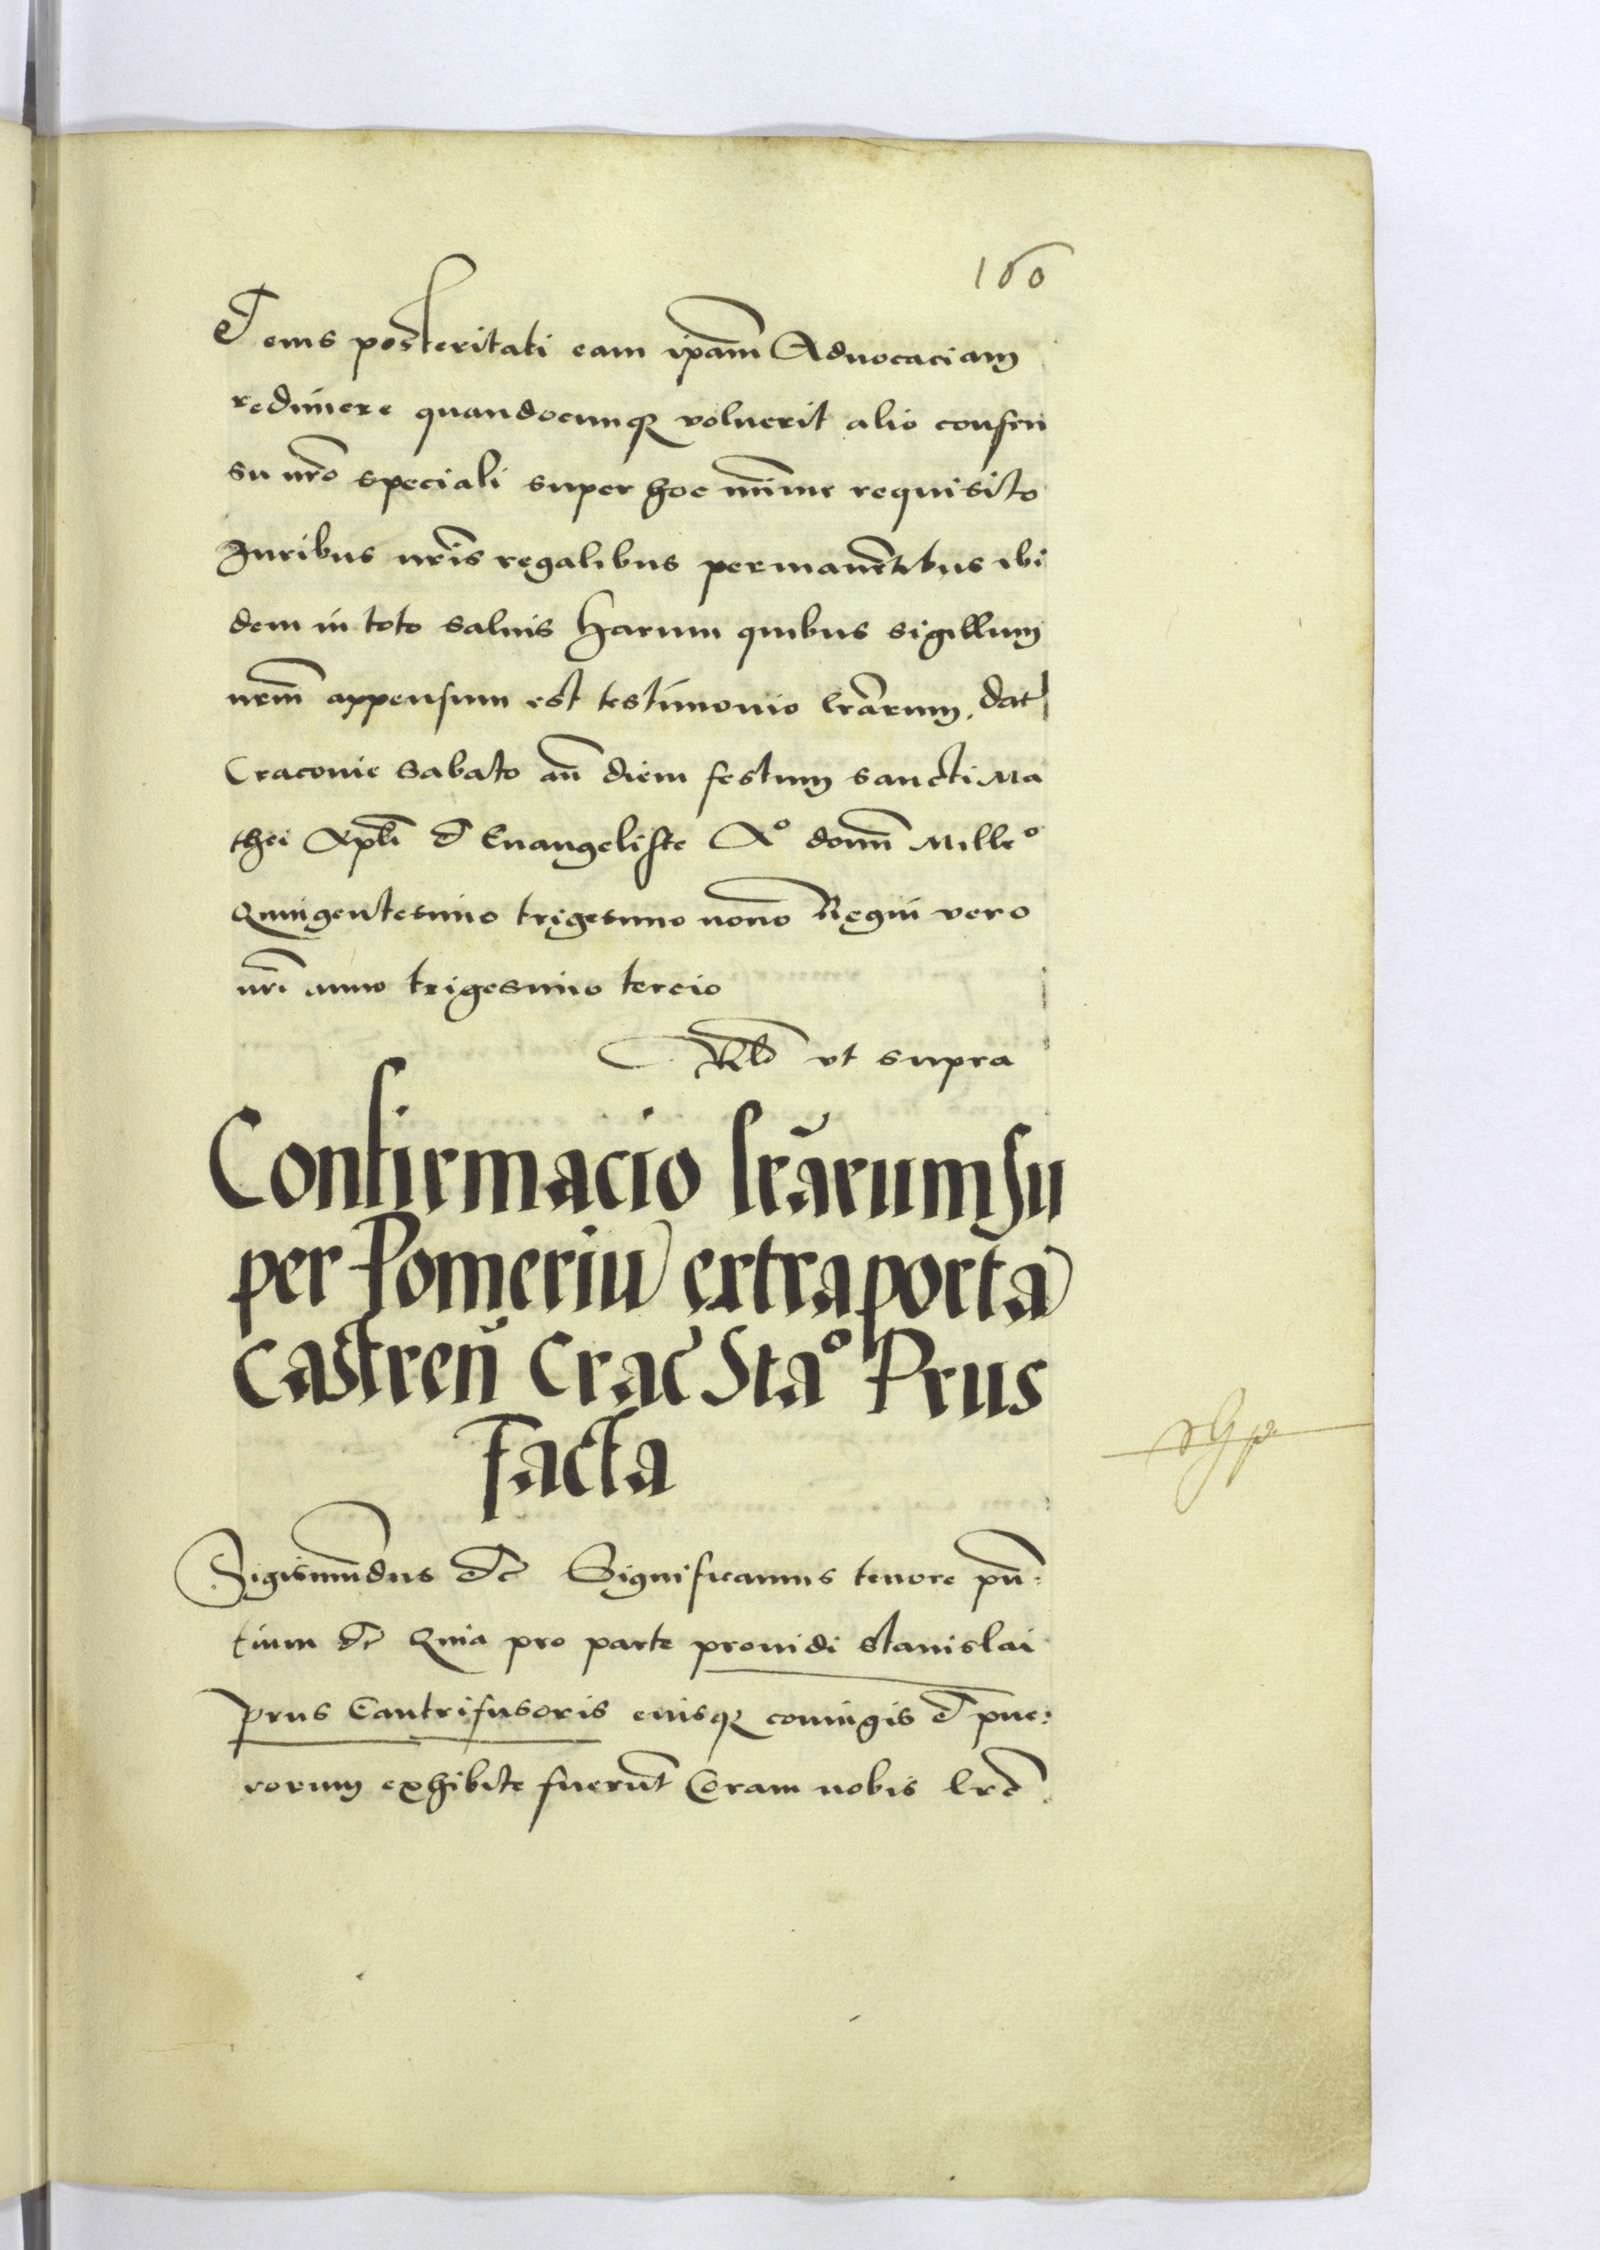 160
et eius posteritati eam ipãm Aduocaciam
redimere quandocunq̃ voluerit alio consen
su nr̃o speciali super hoc minime requisito
Iuribus nr̃is regalibus permanẽtibus ibi
dem in toto saluis Harum quibus sigillum
nr̃m appensum est testimonio lr̃arum. Dat
Cracouie Sabato añ diem festum sancti Ma
thei Apl̃i et Euangeliste Aº domĩ Milleº
Quingentesimo trigesimo nono Regni vero
nr̃i anno trigesimo tercio
Rl̃o vt supra
Confirmacio lr̃arum su
per Pomeriũ extra portã
Castreñ Crac̃ Staº Prus
Facta
Sigismũdus etc̃ Significamus tenore pñ:
tium etc̃ Quia pro parte prouidi Stanislai
Prus Cantrifusoris eiusq̃ coniugis et pue:
rorum exhibite fuerũt Coram nobis lr̃e